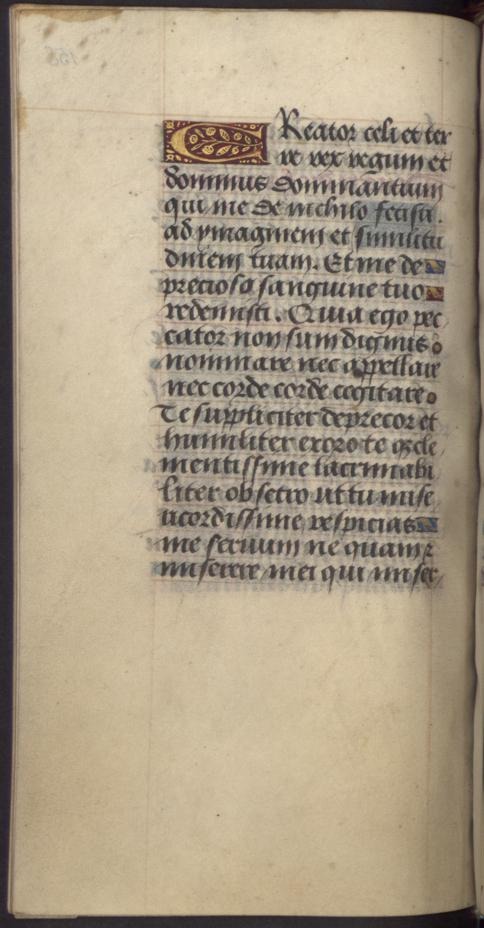 156
CReator celi et ter
re rex regum et
dominus dominantium
qui me de nichilo fecisti.
ad ymaginem et similitu
dinem tuam. Et me de
precioso sanguine tuo
redemisti. Quia ego pec
cator non sum dignus
nominare nec appellare
nec corde corde cogitare
Te suppliciter deprecor et
humiliter exoro te qz cle
mentissime lacrimabi
liter obsecro ut tu mise
ricordissime respicias
me seruum ne quam z
miserere mei qui miser